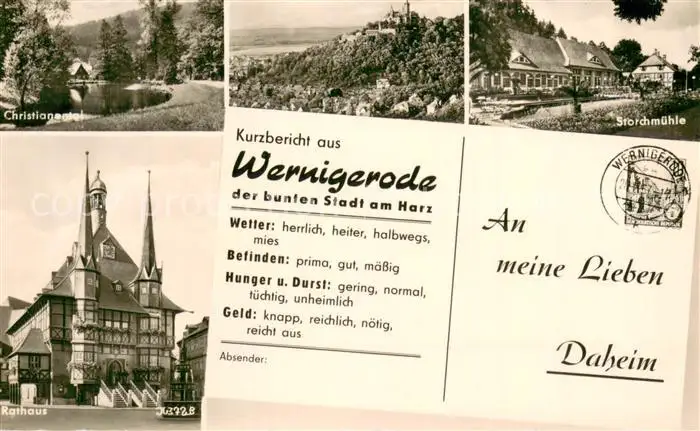 Christianental
Storchmühle
Kurzbericht aus
Wernigerode
der bunten Stadt am Harz
Wetter: herrlich, heiter, halbwegs,
mies
Befinden: prima, gut, mäßig
Hunger u. Durst: gering, normal,
tüchtig, unheimlich
Geld: knapp, reichlich, nötig,
reicht aus
Absender:
WERNIGERODE
An
meine Lieben
Daheim
Rathaus